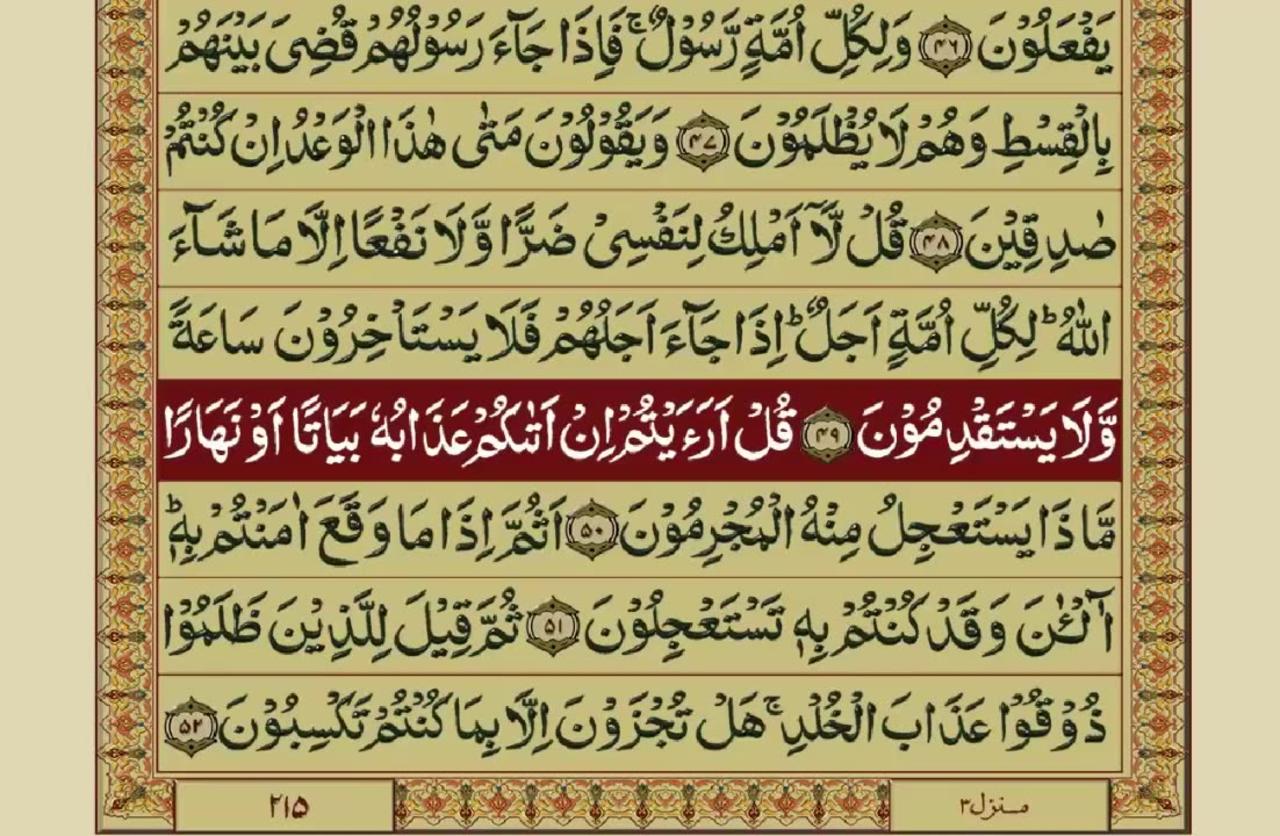 يَفْعَلُوْنَ ﴿۴۶﴾ وَلِكُلِّ اُمَّةٍ رَّسُوْلٌ ۚ فَاِذَا جَآءَ رَسُوْلُهُمْ قُضِىَ بَيْنَهُمْ
بِالْقِسْطِ وَهُمْ لَا يُظْلَمُوْنَ ﴿۴۷﴾ وَيَقُوْلُوْنَ مَتٰى هٰذَا الْوَعْدُ اِنْ كُنْتُمْ
صٰدِقِيْنَ ﴿۴۸﴾ قُلْ لَّاۤ اَمْلِكُ لِنَفْسِىْ ضَرًّا وَّلَا نَفْعًا اِلَّا مَا شَآءَ
اللّٰهُ ؕ لِكُلِّ اُمَّةٍ اَجَلٌ ؕ اِذَا جَآءَ اَجَلُهُمْ فَلَا يَسْتَاْخِرُوْنَ سَاعَةً
وَّلَا يَسْتَقْدِمُوْنَ ﴿۴۹﴾ قُلْ اَرَءَيْتُمْ اِنْ اَتٰٮكُمْ عَذَابُهٗ بَيَاتًا اَوْ نَهَارًا
مَّاذَا يَسْتَعْجِلُ مِنْهُ الْمُجْرِمُوْنَ ﴿۵۰﴾ اَثُمَّ اِذَا مَا وَقَعَ اٰمَنْتُمْ بِهٖ ؕ
آٰلْـٰٔنَ وَقَدْ كُنْتُمْ بِهٖ تَسْتَعْجِلُوْنَ ﴿۵۱﴾ ثُمَّ قِيْلَ لِلَّذِيْنَ ظَلَمُوْا
ذُوْقُوْا عَذَابَ الْخُلْدِ ۚ هَلْ تُجْزَوْنَ اِلَّا بِمَا كُنْتُمْ تَكْسِبُوْنَ ﴿۵۲﴾
منزل۳
۲۱۵